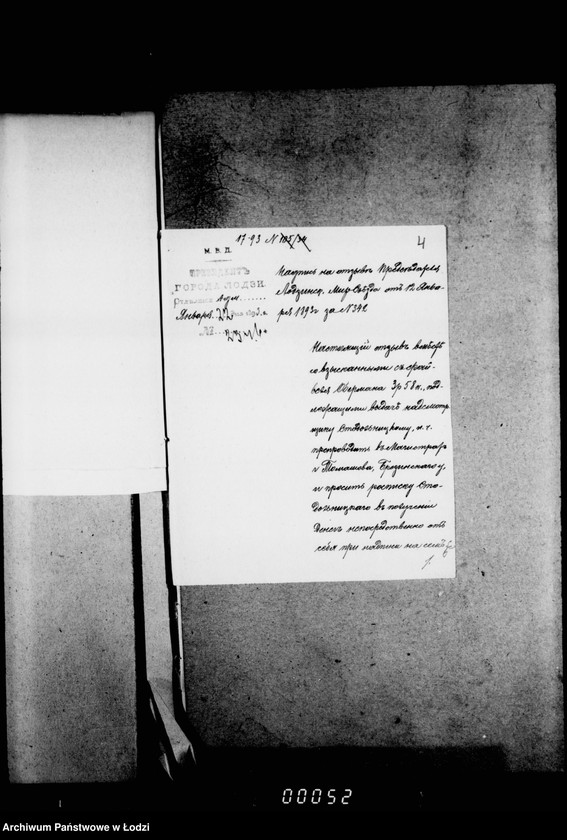 17-93 N 185/94
4
М. В. Д.
ПРЕЗИДЕНТЪ
ГОРОДА ЛОДЗИ.
Отдѣленіе адм.
Января 22 дня 1893 г.
№
Надпись на отзывѣ Предсѣдателя
Лодзинск. Мир. Съѣзда отъ 12 Янва-
ря 1893 г за N 342
Настоящій отзывъ вмѣстѣ
со взысканными съ
Обермана 3 р 58 к., под-
лежащими выдачѣ надсмотр
щику н. ч.
препроводить въ Магистратъ
г Томашова, Брезинскаго у,
и просить росписку Сто-
въ полученіи
денегъ непосредственно отъ
себя при надписи на семъ
00052
Archiwum Państwowe w Łodzi